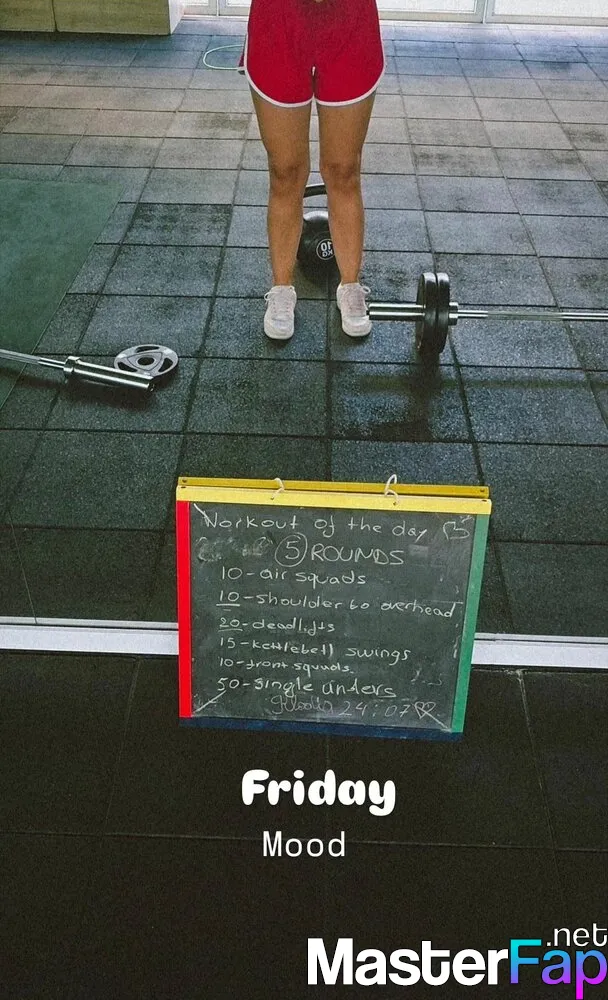 10 KG
Workout of the day
5 ROUNDS
10-air squads
10-shoulder to overhead
20-deadlifts
15-kettlebell swings
10-front squads
50-single unders
24:07
Friday
Mood
.net
MasterFap